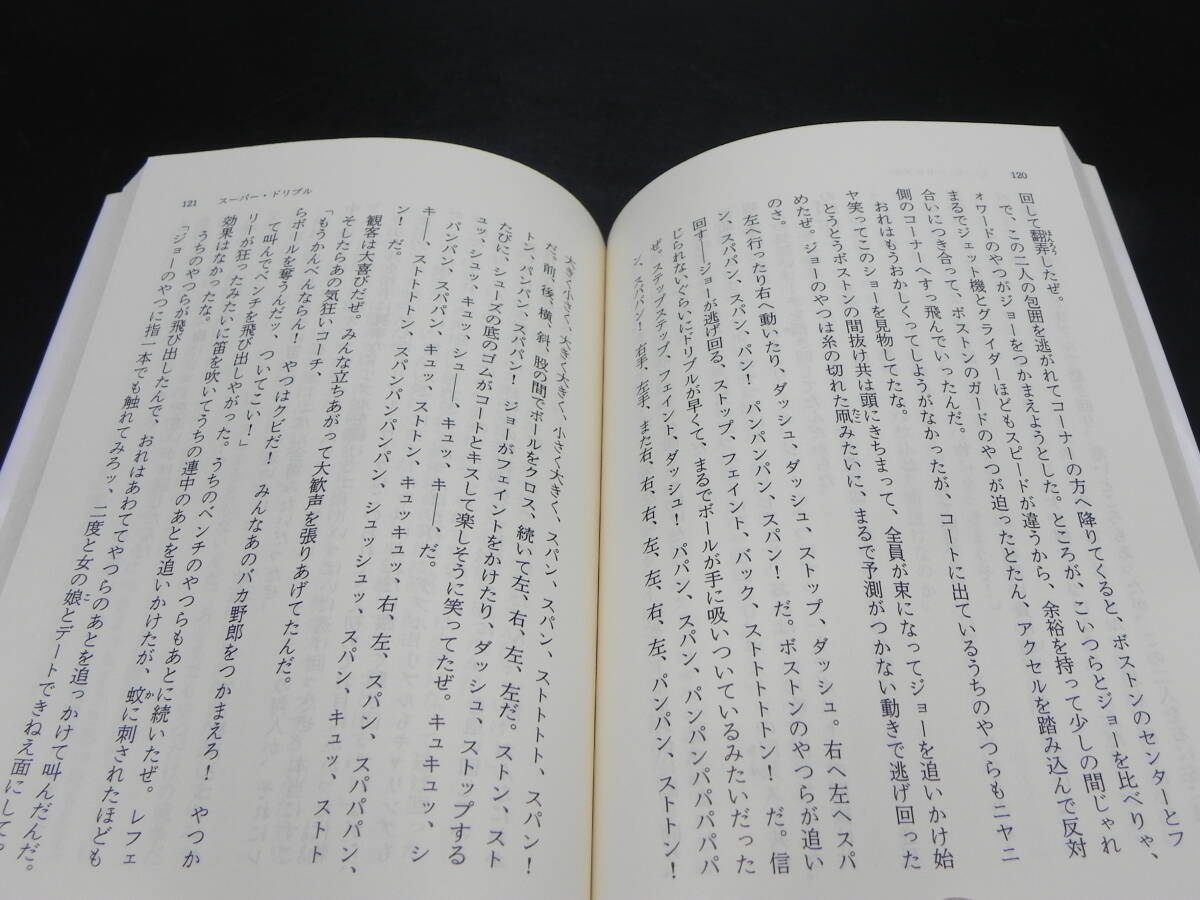 120
回して翻弄したぜ。
で、この二人の包囲を逃がれてコーナーの方へ降りてくると、ボストンのセンターとフ
ォワードのやつがジョーをつかまえようとした。ところが、こいつらとジョーを比べりゃ、
まるでジェット機とグライダーほどもスピードが違うから、余裕を持って少しの間じゃれ
合いにつき合って、ボストンのガードのやつが迫ったとたん、アクセルを踏み込んで反対
側のコーナーへすっ飛んでいったんだ。
おれはもうおかしくってしようがなかったが、コートに出ているうちのやつらもニヤニ
ヤ笑ってこのショーを見物してたな。
とうとうボストンの間抜け共は頭にきちまって、全員が束になってジョーを追いかけ始
めたぜ。ジョーのやつは糸の切れた凧みたいに、まるで予測がつかない動きで逃げ回った
のさ。
左へ行ったり右へ動いたり、ダッシュ、ダッシュ、ストップ、ダッシュ。右へ左へスパ
ン、スパパン、スパン、パン！　パンパンパン、スパン！　だ。ボストンのやつらが追い
回す――ジョーが逃げ回る、ストップ、フェイント、バック、ストトトトン！　だ。信
じられないぐらいにドリブルが早くて、まるでボールが手に吸いついているみたいだった
ぜ。ステップステップ、フェイント、ダッシュ！　パパン、スパン、パンパンパパパパ
ン、スパパン！　右手、左手、また右、右、左、左、右、左、パンパン、ストン！
大きく小さく、大きく大きく、小さく大きく、スパン、スパン、ストトトト、スパン！
だ。前、後、横、斜、股の間でボールをクロス、続いて左、右、左、左だ。ストン、スト
トン、パンパン、スパパン！　ジョーがフェイントをかけたり、ダッシュ、ストップする
たびに、シューズの底のゴムがコートとキスして楽しそうに笑ってたぜ。キュキュッ、シ
ュッ、シュッ、キュッ、シュ――、キュッ、キ――、だ。
パンパン、スパパン、キュッ、ストトン、キュッキュッ、右、左、スパン、キュッ、スト
キ――、ストトトトン、スパンパンパンパン、シュッシュッ、スパン、スパパパン、
ン！　だ。
観客は大喜びだぜ。みんな立ちあがって大歓声を張りあげてたんだ。
そしたらあの気狂いコーチ、
「もうかんべんならん！　やつはクビだ！　みんなあのバカ野郎をつかまえろ！　やつか
らボールを奪うんだッ、ついてこい！」
って叫んでベンチを飛び出しやがった。うちのベンチのやつらもあとに続いたぜ。レフェ
リーが狂ったみたいに笛を吹いてうちの連中のあとを追いかけたが、蚊に刺されたほども
効果はなかったな。
うちのやつらが飛び出したんで、おれはあわててやつらのあとを追っかけて叫んだんだ。
「ジョーのやつに指一本でも触れてみろッ、二度と女の娘とデートできねえ面にして
121 スーパー・ドリブル